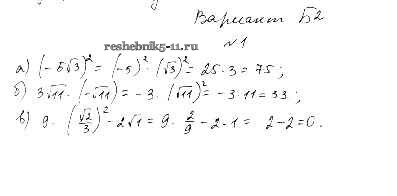 Вариант Б2
reshebnik5-11.ru
№1
а) (-5√3)² = (-5)² · (√3)² = 25 · 3 = 75;
б) 3√11 · (-√11) = -3 · (√11)² = -3 · 11 = 33;
в) 9 · (√2/3)² - 2√1 = 9 · 2/9 - 2 · 1 = 2 - 2 = 0.